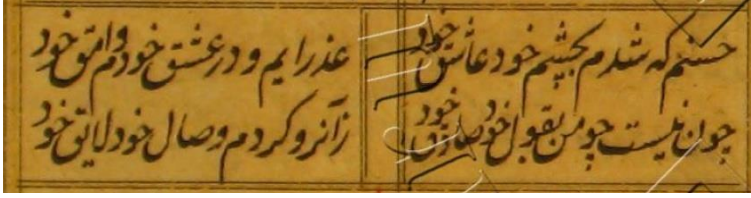 حسنم که شدم بچشم خود عاشق خود عذرایم و در عشق خودم وامق خود
چون نیست چو من بقول خود صادق خود زآنرو کردم وصال خود لایق خود